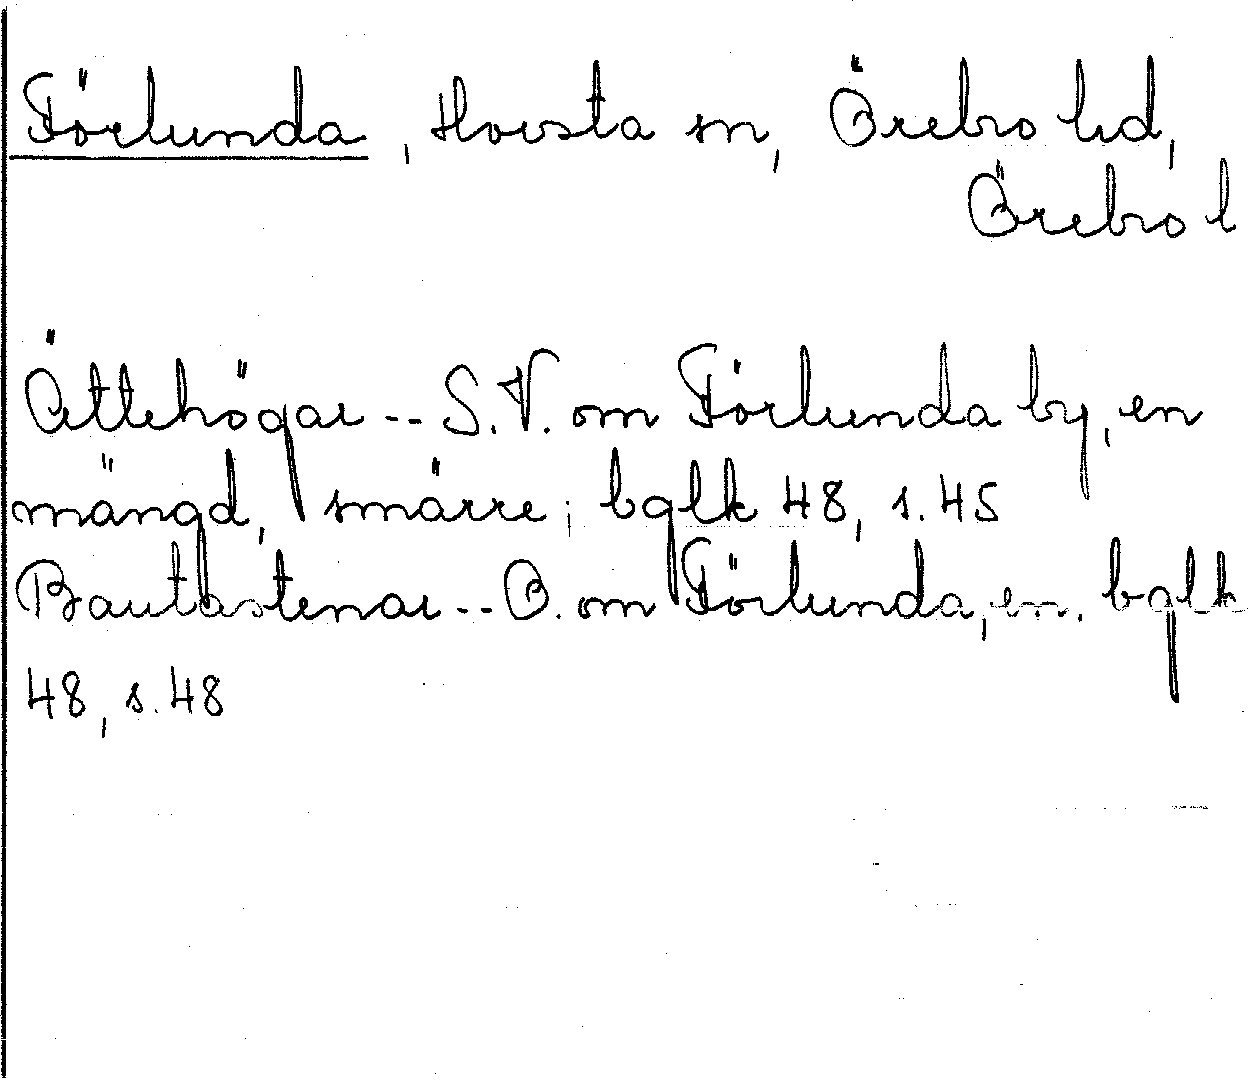 Förlunda, Hovsta sn, Örebro hd,
Örebro l
Ättehögar -- S.V. om Förlunda by, en
mängd, smärre; bglk 48, s. 45
Bautastenar -- Ö. om Förlunda, en. bglk
48, s. 48